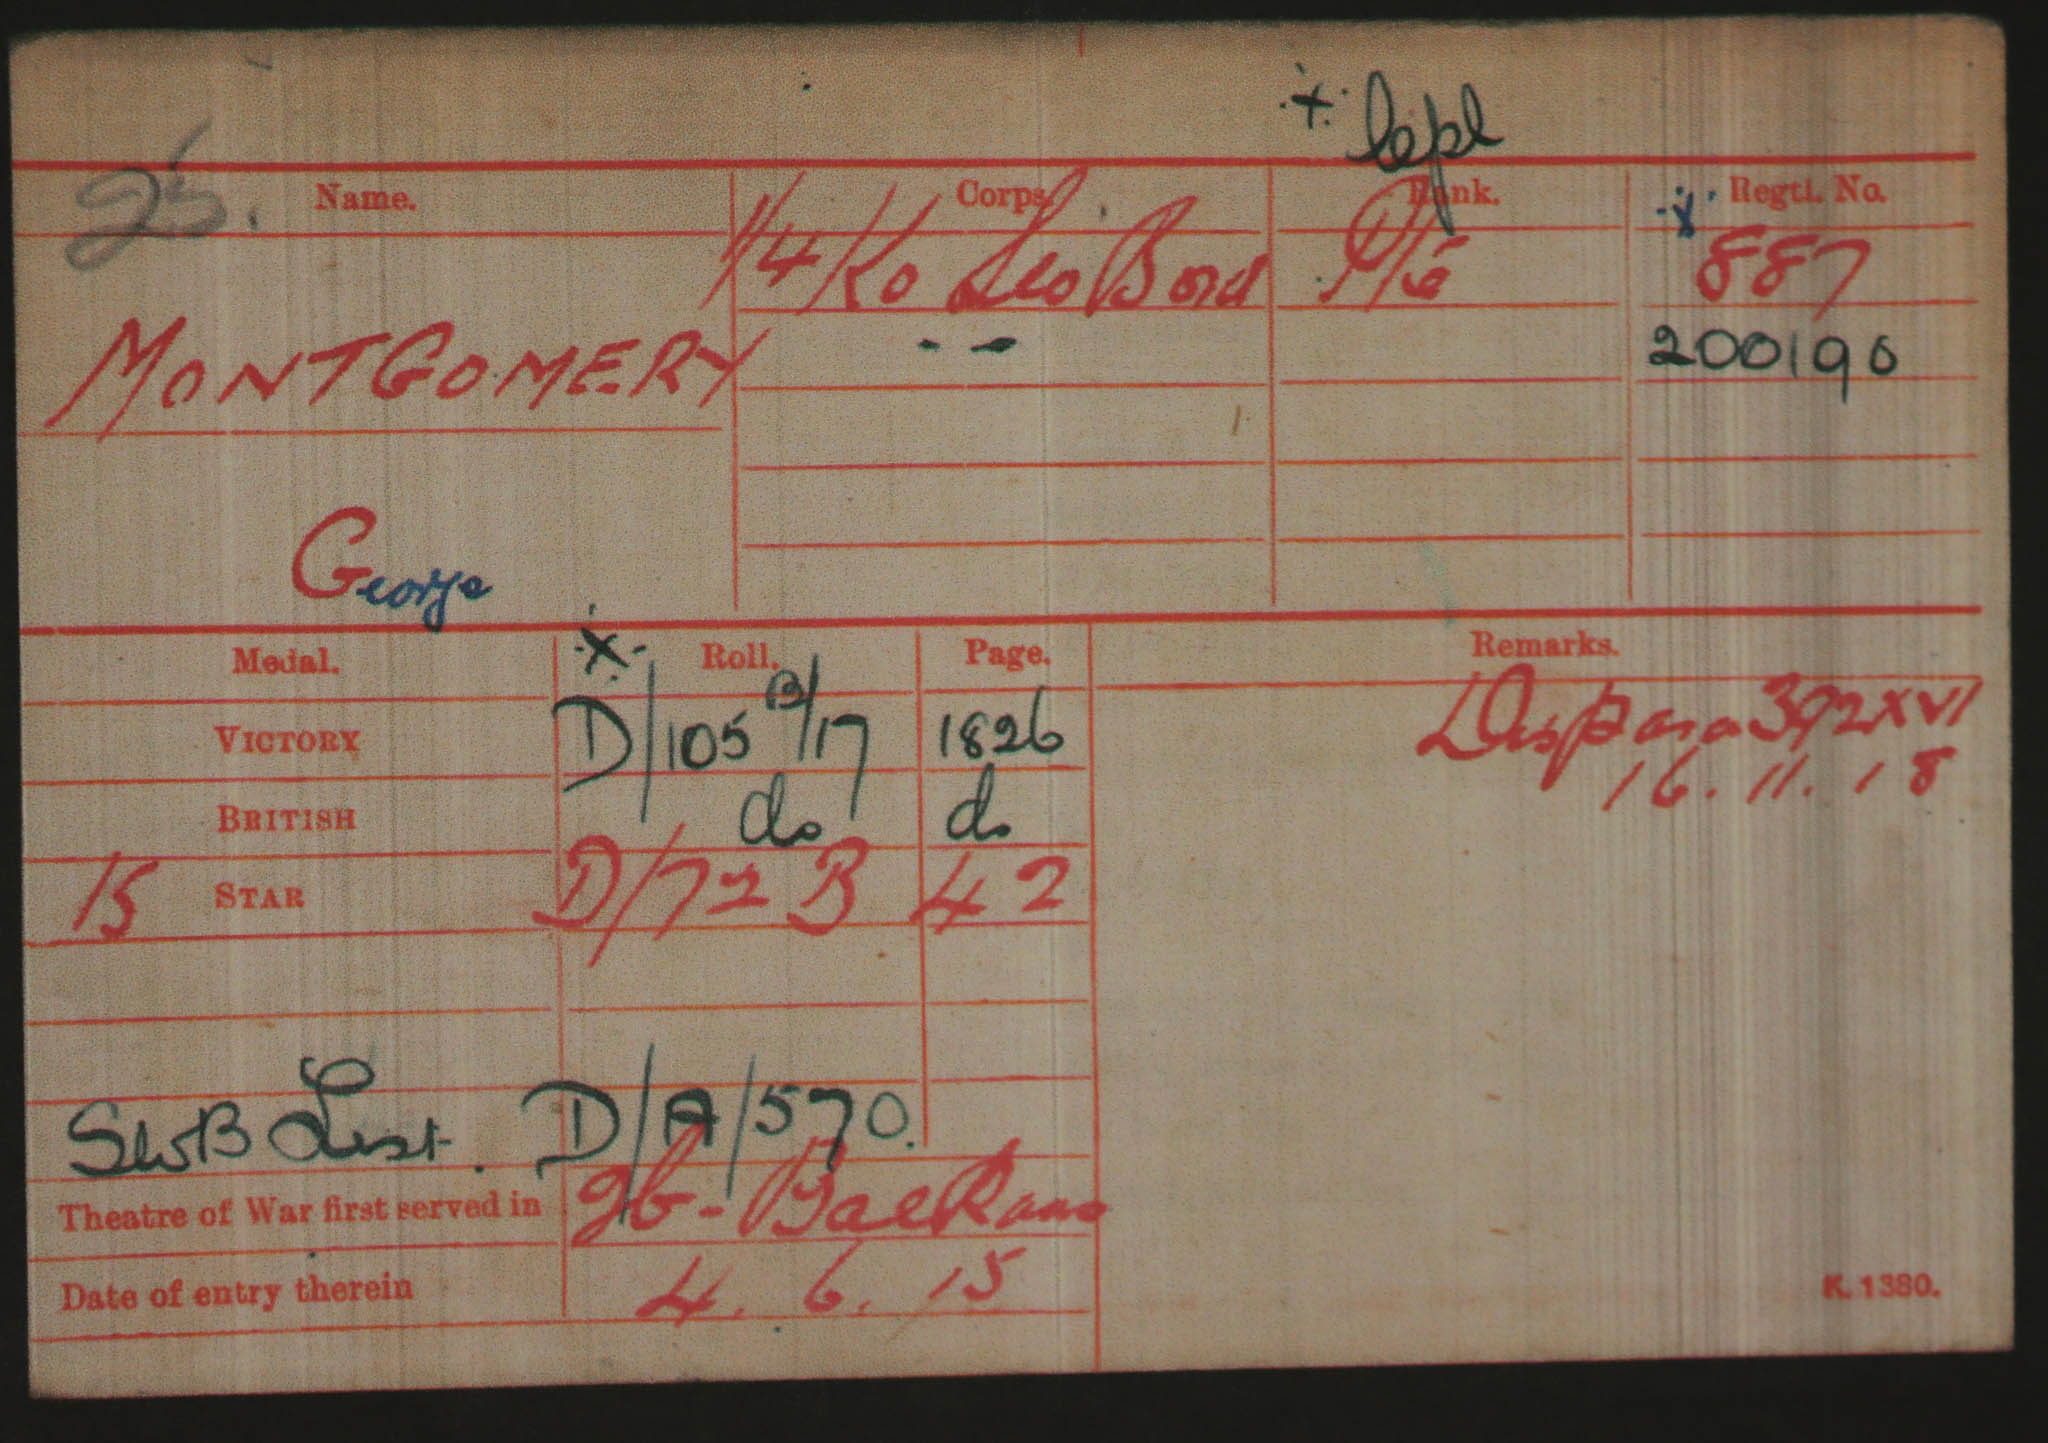 x Cpl
25. Name. Corps. Rank. x Regtl. No.
1/4 KO Sco Bord Pte 887
MONTGOMERY - - 200190
George
Medal. x Roll. Page. Remarks.
VICTORY D/105 B/17 1826 Dis Para 392 XVI
16.11.18
BRITISH do do
15 STAR D/72 B 42
SWB List. D/A/570.
Theatre of War first served in 2b - Balkans
Date of entry therein 4.6.15
K. 1380.